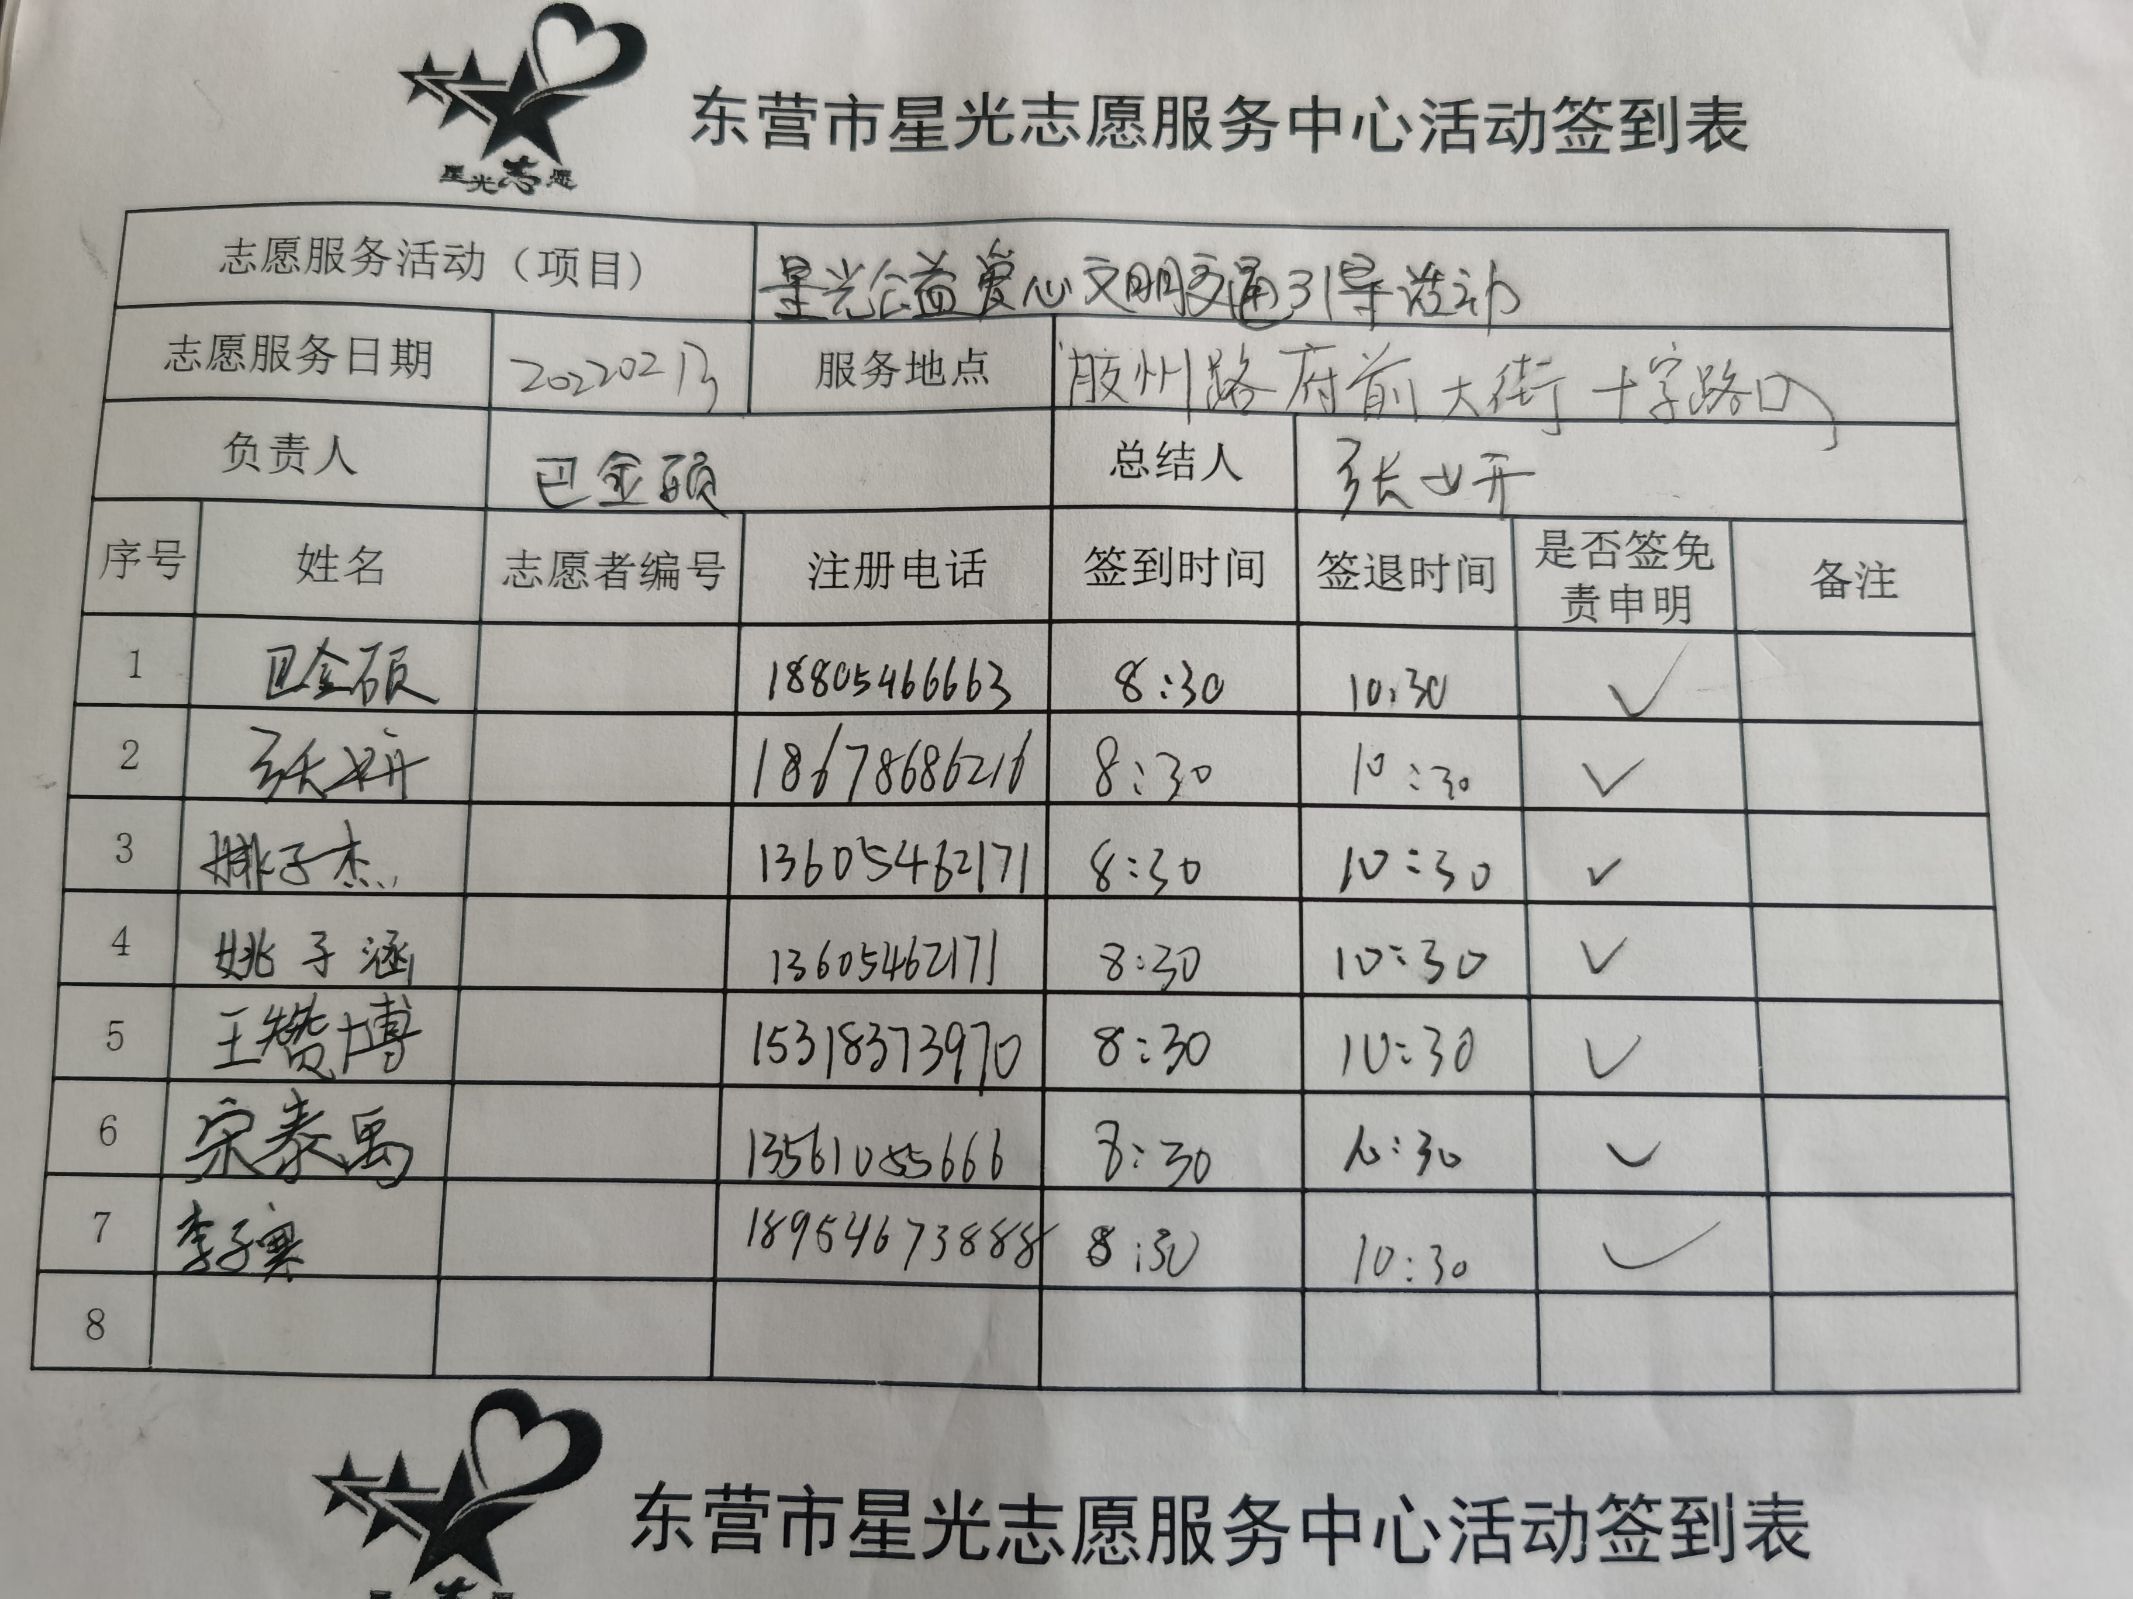 星光志愿
东营市星光志愿服务中心活动签到表
志愿服务活动（项目） 星光公益爱心文明交通引导活动
志愿服务日期 20220213 服务地点 胶州路府前大街十字路口
负责人 巴金硕 总结人 张妍
序号 姓名 志愿者编号 注册电话 签到时间 签退时间 是否签免责申明 备注
1 巴金硕 18805466663 8:30 10:30 ✓
2 张妍 18678686216 8:30 10:30 ✓
3 姚子杰 13605462171 8:30 10:30 ✓
4 姚子涵 13605462171 8:30 10:30 ✓
5 王赞博 15318373970 8:30 10:30 ✓
6 宋泰禹 13561055666 8:30 10:30 ✓
7 李子寒 18954673888 8:30 10:30 ✓
8
东营市星光志愿服务中心活动签到表